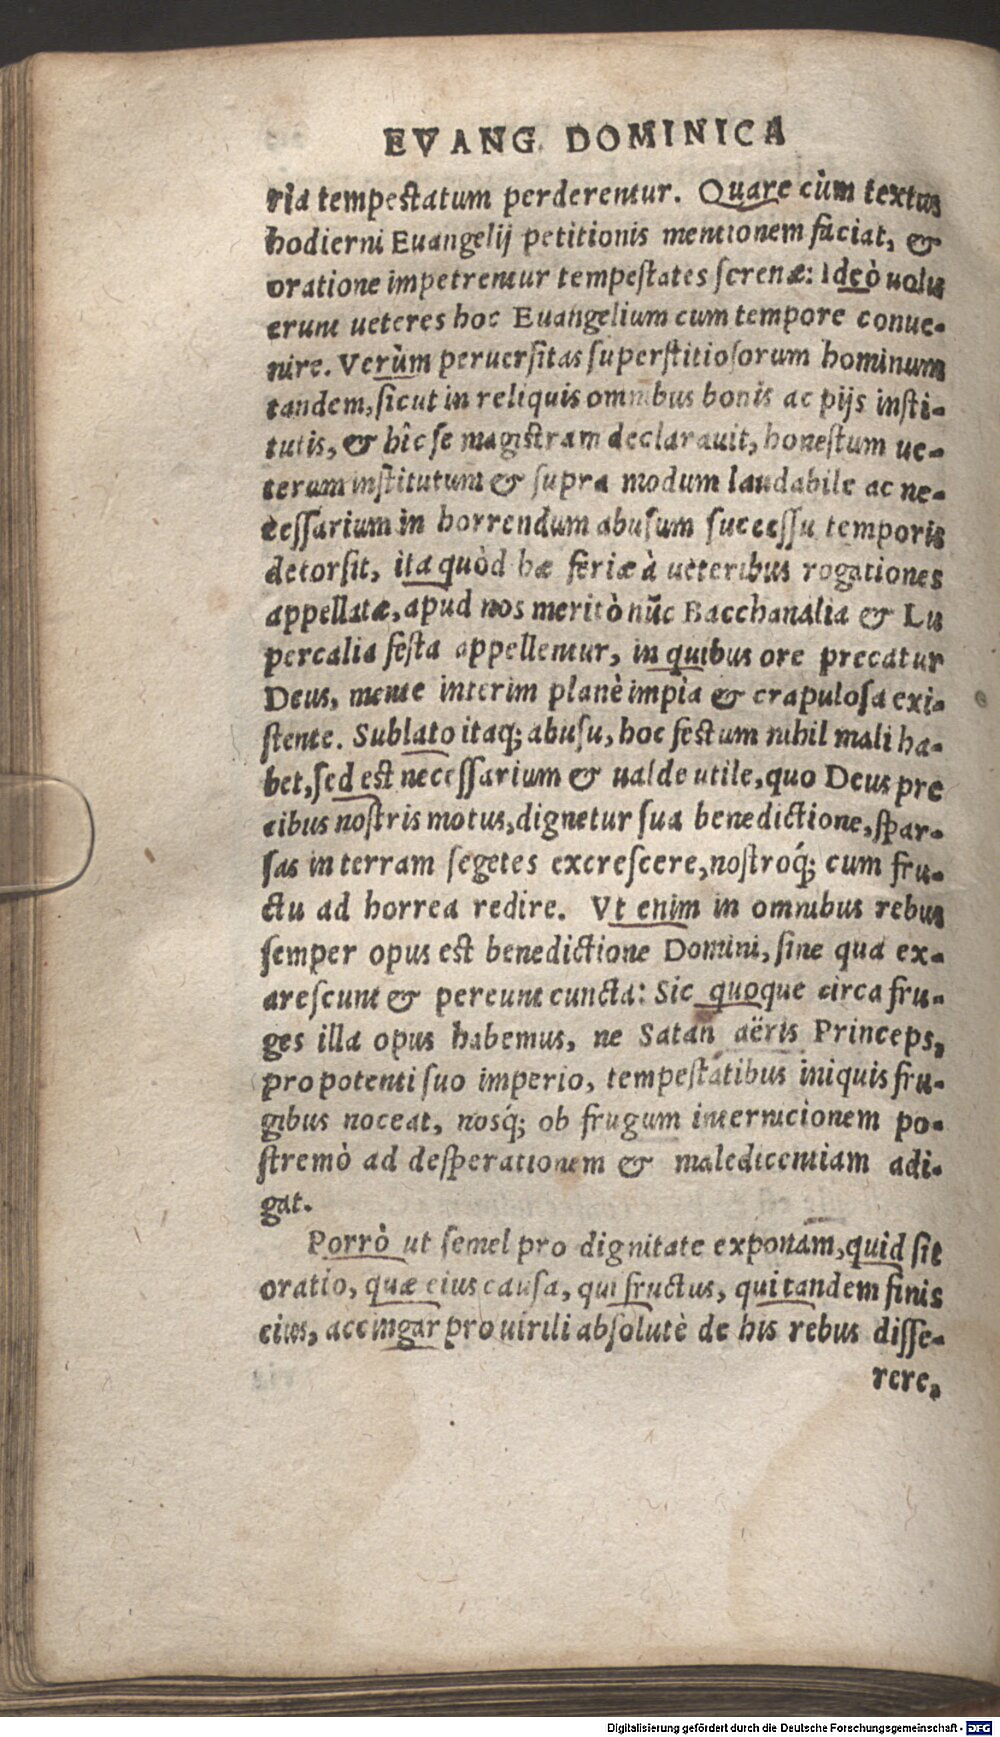 EVANG. DOMINICA
ria tempestatum perderentur. Quare cùm textus
hodierni Euangelij petitionis mentionem faciat, &
oratione impetrentur tempestates serenæ: Ideò uolu
erunt ueteres hoc Euangelium cum tempore conue-
nire. Verùm peruersitas superstitiosorum hominum
tandem, sicut in reliquis omnibus bonis ac pijs insti-
tutis, & hîc se magistram declarauit, honestum ue-
terum institutum & supra modum laudabile ac ne-
cessarium in horrendum abusum successu temporis
detorsit, ita quòd hæ feriæ à ueteribus rogationes
appellatæ, apud nos meritò nũc Bacchanalia & Lu
percalia festa appellentur, in quibus ore precatur
Deus, mente interim planè impia & crapulosa exi-
stente. Sublato itaq; abusu, hoc festum nihil mali ha-
bet, sed est necessarium & ualde utile, quo Deus pre
cibus nostris motus, dignetur sua benedictione, spar-
sas in terram segetes excrescere, nostroq́; cum fru-
ctu ad horrea redire. Vt enim in omnibus rebus
semper opus est benedictione Domini, sine qua ex-
arescunt & pereunt cuncta: Sic quoque circa fru-
ges illa opus habemus, ne Satan aëris Princeps,
pro potenti suo imperio, tempestatibus iniquis fru-
gibus noceat, nosq́; ob frugum internicionem po-
stremò ad desperationem & maledicentiam adi-
gat.
Porrò ut semel pro dignitate exponam, quid sit
oratio, quæ eius causa, qui fructus, qui tandem finis
eius, accingar pro uirili absolutè de his rebus disse-
rere,
Digitalisierung gefördert durch die Deutsche Forschungsgemeinschaft - DFG